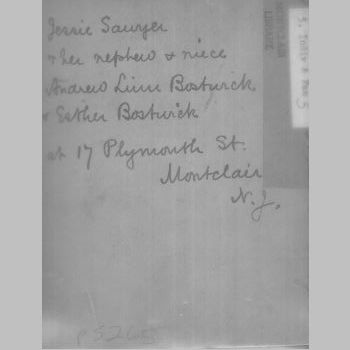 Jessie Sawyer
& her nephew & niece
Andrew Linn Bostwick
& Esther Bostwick
at 17 Plymouth St.
Montclair
N.J.
MONTCLAIR
LIBRARY
p 5265